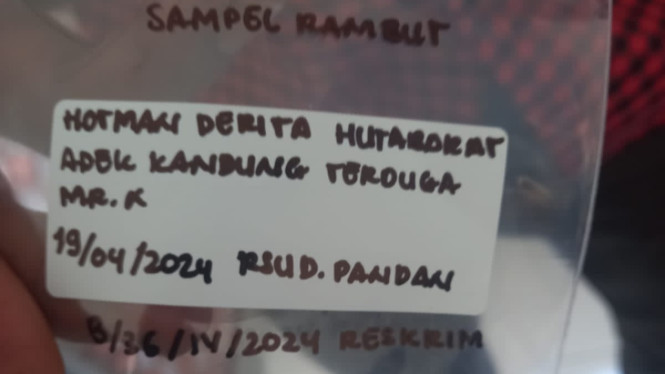 SAMPEL RAMBUT
HOTMAN DERITA HUTABARAT
ADEK KANDUNG TERDUGA
MR. X
19/04/2024 RSUD. PANDAN
B/36/IV/2024 RESKRIM